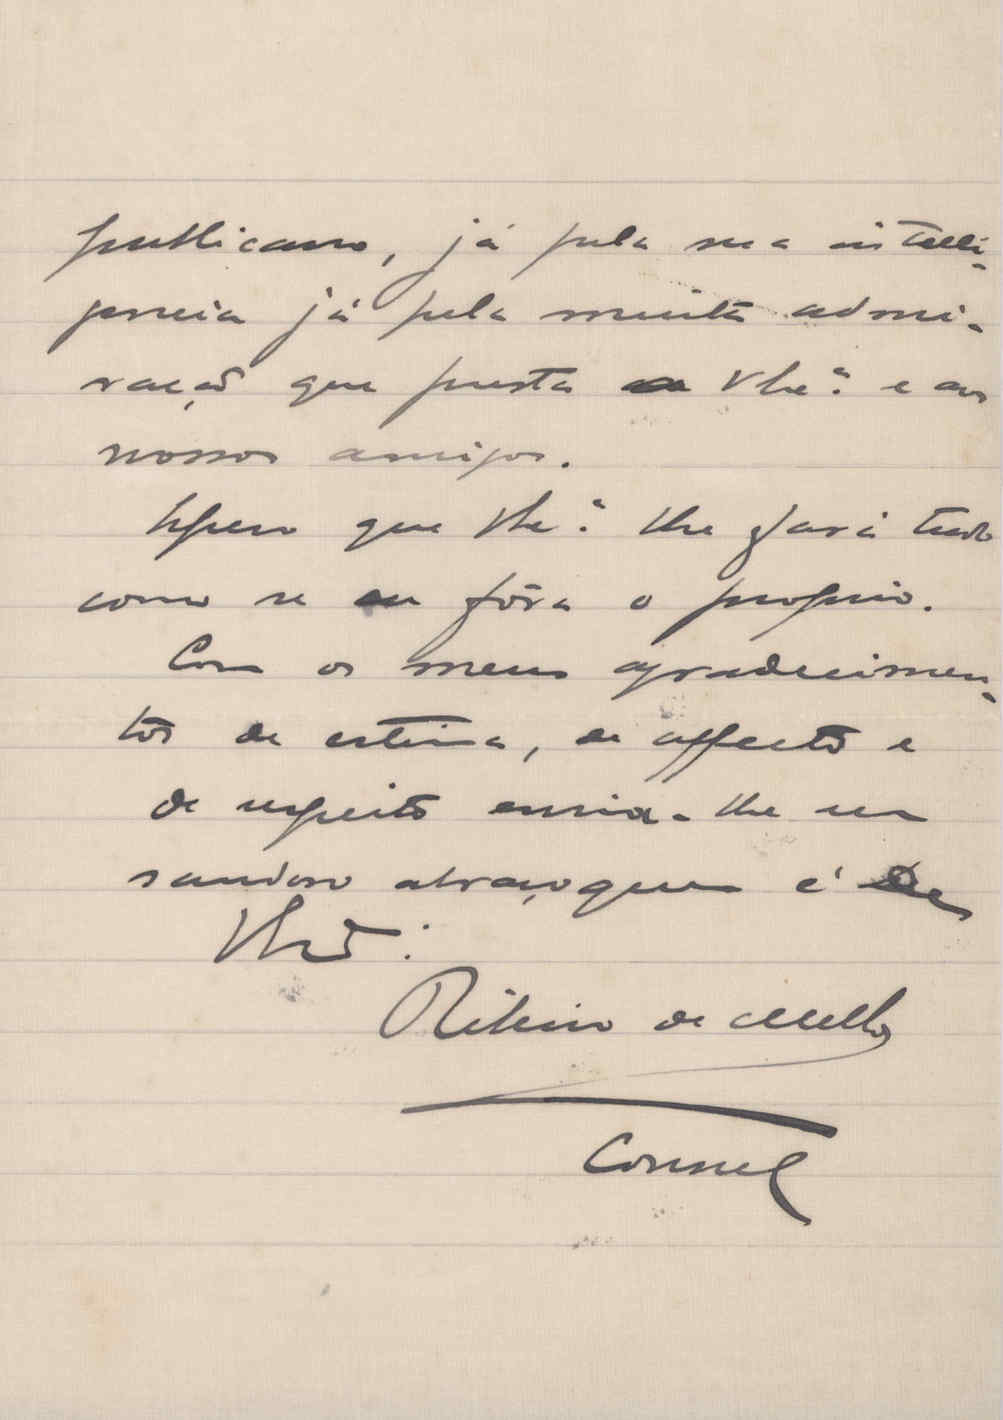 publicano, já pela sua intelli-
gencia já pela muita admi-
ração que presta a V. Exª. e aos
nossos amigos.
Espero que V. Exª. lhe fará tudo
como se eu fôra o proprio.
Com os meus agradecimen-
tos de estima, de affecto e
de respeito envia-lhe um
saudoso abraço quem é de
Ribeiro de Mello
Coronel